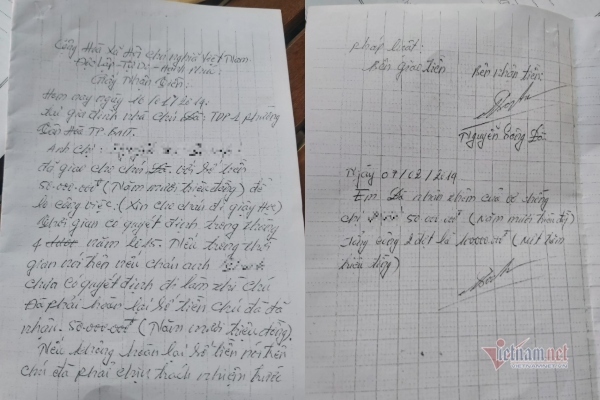 Cộng Hòa Xã Hội Chủ nghĩa Việt Nam
Độc Lập - Tự Do - Hạnh Phúc
Giấy Nhận Tiền:
Hôm nay ngày 10/12/2014.
Tại gia đình nhà chú TDP 4 phường
TP.
Anh chị:
đã giao cho chú số tiền
50.000.000đ (Năm mươi triệu đồng) để
lo công việc. (Xin cho cháu đi dạy học)
Thời gian có quyết định trong tháng
4 năm 2015. Nếu trong thời
gian nói trên nếu cháu anh
chưa có quyết định đi làm thì chú
phải hoàn lại số tiền chú đã
nhận. 50.000.000đ (Năm mươi triệu đồng).
Nếu không hoàn lại số tiền nói trên
chú phải chịu trách nhiệm trước
pháp luật.
Bên giao tiền Bên nhận tiền
Nguyễn
Ngày 09/02/2014
Em nhận thêm của vợ chồng
chị 50.000.000đ (Năm mươi triệu đ)
Tổng cộng 2 đợt là (Một trăm
triệu đồng)
Vietnamnet
VIETNAMNET.VN